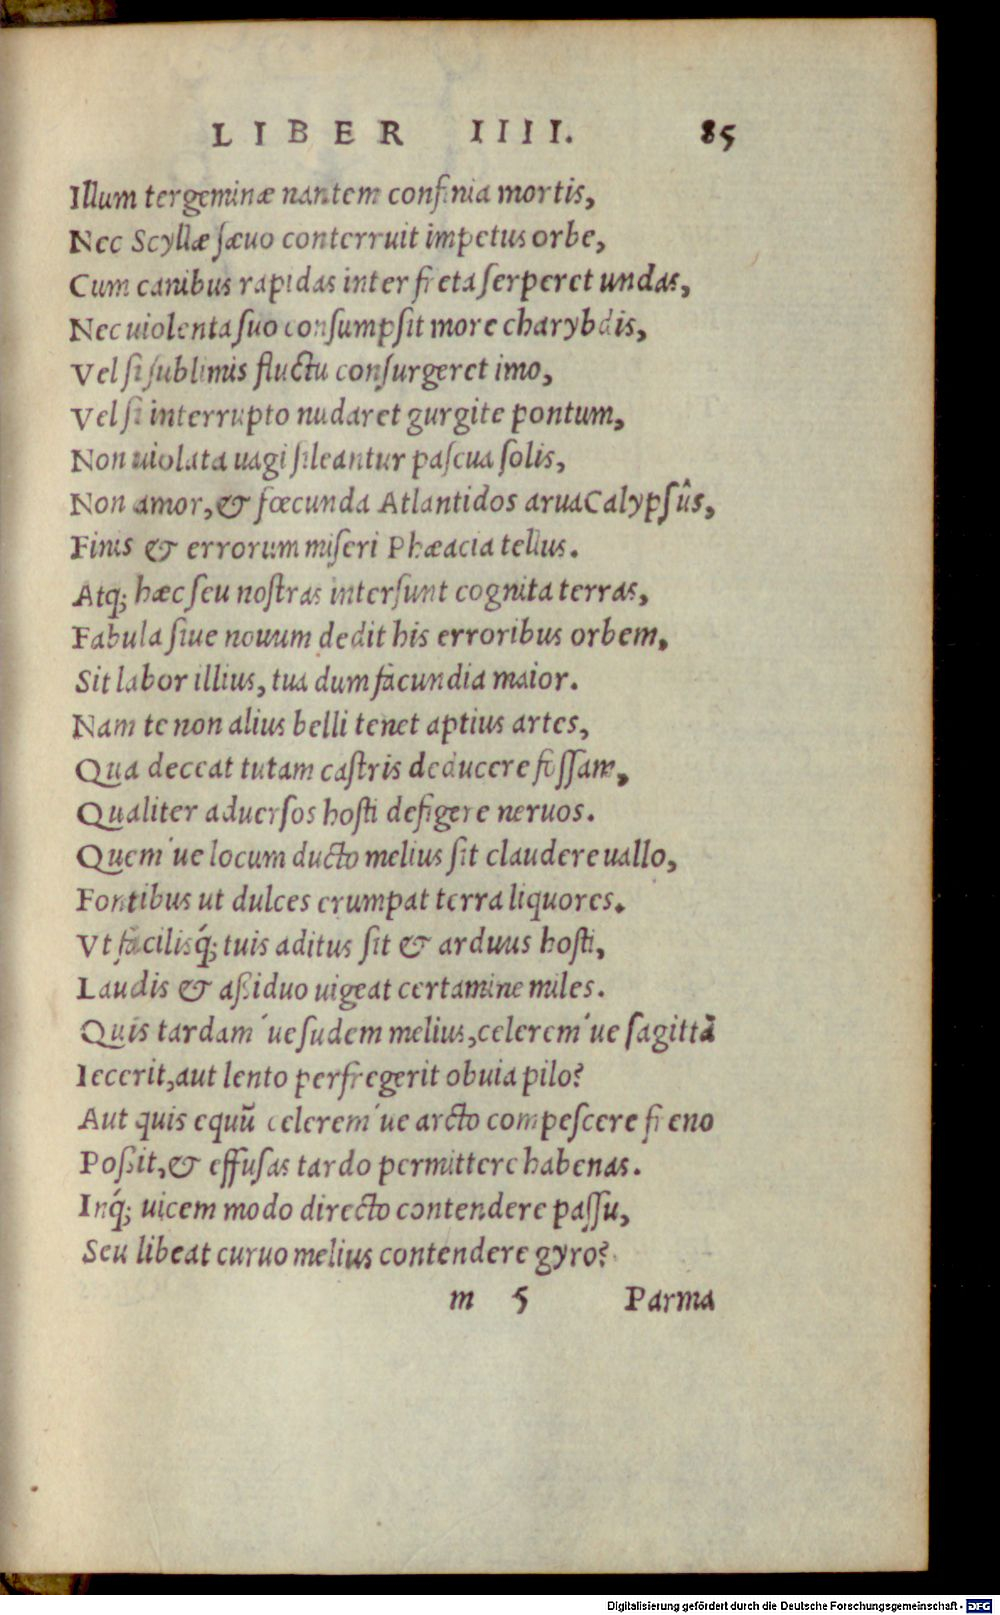 LIBER IIII. 85
Illum tergeminæ nantem confinia mortis,
Nec Scyllæ ſæuo conterruit impetus orbe,
Cum canibus rapidas inter freta ſerperet undas,
Nec uiolenta ſuo conſumpſit more charybdis,
Vel ſi ſublimis fluctu conſurgeret imo,
Vel ſi interrupto nudaret gurgite pontum,
Non uiolata uagi ſileantur paſcua ſolis,
Non amor, & fœcunda Atlantidos arua Calypſûs,
Finis & errorum miſeri Phæacia tellus.
Atq; hæc ſeu noſtras interſunt cognita terras,
Fabula ſiue nouum dedit his erroribus orbem,
Sit labor illius, tua dum facundia maior.
Nam te non alius belli tenet aptius artes,
Qua deceat tutam caſtris deducere foſſam,
Qualiter aduerſos hoſti defigere neruos.
Quem'ue locum ducto melius ſit claudere uallo,
Fontibus ut dulces erumpat terra liquores.
Vt facilisq́; tuis aditus ſit & arduus hoſti,
Laudis & aßiduo uigeat certamine miles.
Quis tardam'ue ſudem melius, celerem'ue ſagittã
Iecerit, aut lento perfregerit obuia pilo?
Aut quis equũ celerem'ue arcto compeſcere freno
Poßit, & effuſas tardo permittere habenas.
Inq́; uicem modo directo contendere paſſu,
Seu libeat curuo melius contendere gyro?
m 5 Parma
Digitalisierung gefördert durch die Deutsche Forschungsgemeinschaft - DFG